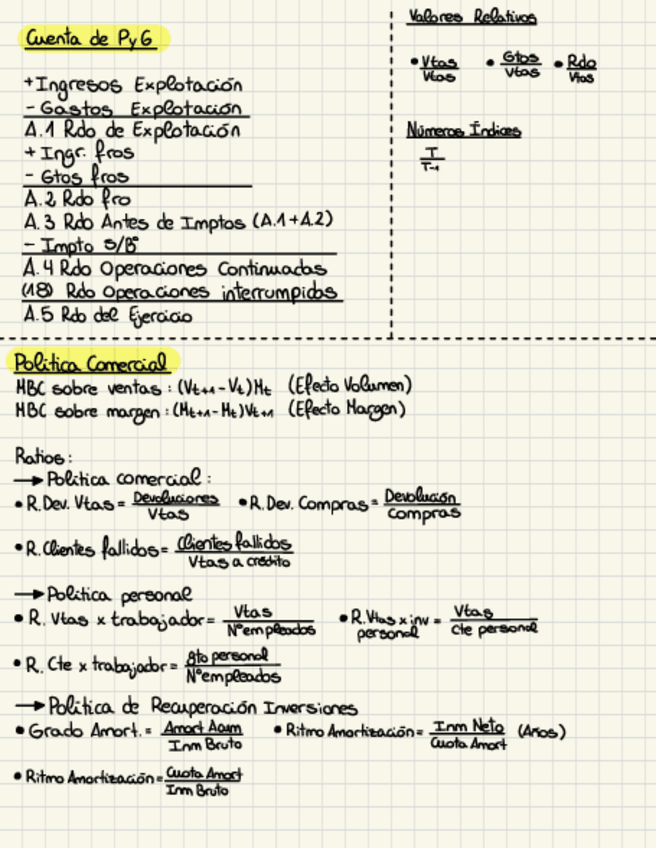 Cuenta de PyG
+ Ingresos Explotación
- Gastos Explotación
A.1 Rdo de Explotación
+ Ingr. fros
- Gtos fros
A.2 Rdo fro
A.3 Rdo Antes de Imptos (A.1+A.2)
- Impto s/Bº
A.4 Rdo Operaciones Continuadas
(18) Rdo Operaciones interrumpidas
A.5 Rdo del Ejercicio
Valores Relativos
• Vtas/Vtas • Gtos/Vtas • Rdo/Vtas
Números Índices
T/T-1
Politica Comercial
MBC sobre ventas : (Vt+1-Vt)Mt (Efecto Volumen)
MBC sobre margen : (Mt+1-Mt)Vt+1 (Efecto Margen)
Ratios :
→ Politica comercial :
• R. Dev. Vtas = Devoluciones/Vtas • R. Dev. Compras = Devolución/Compras
• R. Clientes fallidos = Clientes fallidos/Vtas a crédito
→ Politica personal
• R. Vtas x trabajador = Vtas/Nº empleados • R. Vtas x inv personal = Vtas/Cte personal
• R. Cte x trabajador = gto personal/Nº empleados
→ Politica de Recuperación Inversiones
• Grado Amort. = Amort Acum/Inm Bruto • Ritmo Amortización = Inm Neto/Cuota Amort (Años)
• Ritmo Amortización = Cuota Amort/Inm Bruto